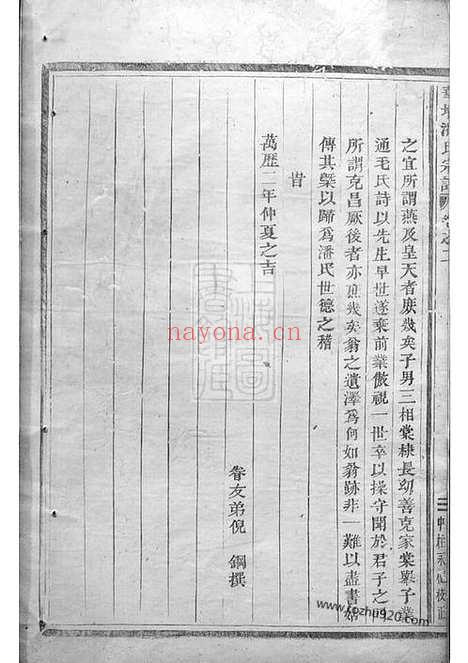 之宜所謂燕及皇天者庶幾矣子男三相棠棣長幼善克家棠舉子業
通毛氏詩以先生早世遂棄前業傲視一世卒以操守聞於君子之
所謂克昌厥後者亦庶幾矣翁之遺澤爲何如翁跡非一難以盡書姑
傳其槩以歸爲潘氏世德之稽
旹
萬歷二年仲夏之吉
眷友弟倪 鋼撰
潘氏宗譜
nayona.cn
www.kozhu920.com